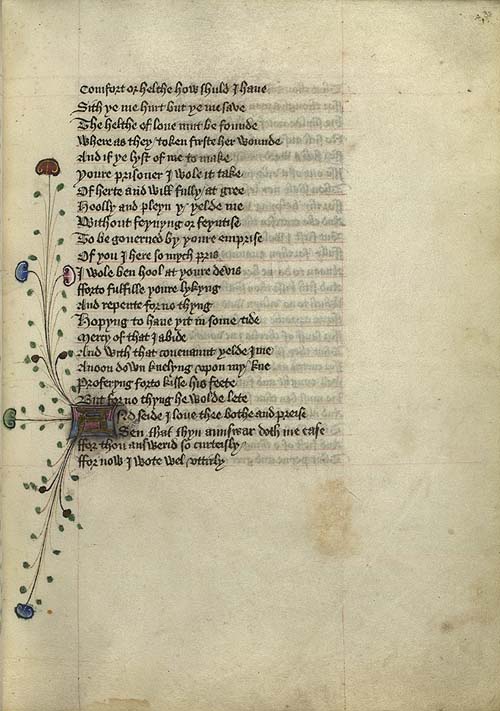 Comfort or helthe how shuld I haue
Sith ye me hurt but ye me saue
The helthe of loue mut be founde
Where as they token firste her wounde
And if ye lyst of me to make
Youre prisoner I wole it take
Of herte and will fully at gree
Hoolly and pleyn y yelde me
Without feynyng or feyntise
To be gouerned by youre emprise
Of you I here so mych pris
I wole ben hool at youre deuis
fforto fulfille youre lykyng
And repente for no thyng
Hopyng to haue yit in some tide
Mercy of that I abide
And with that couenaunt yelde I me
Anoon down knelyng vpon my kne
Proferyng forto kisse his feete
But for no thyng he wolde lete
And seide I loue thee bothe and preise
Sen that thyn aunswar doth me ease
ffor thou answerid so curteisly
ffor now I wote wel vttirly